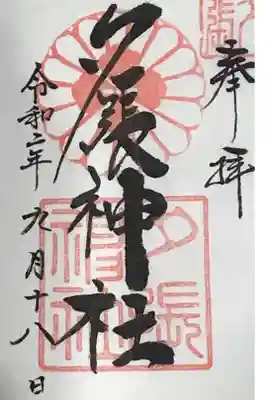 奉拝
夕張神社
令和二年
九月十八日
夕張神社